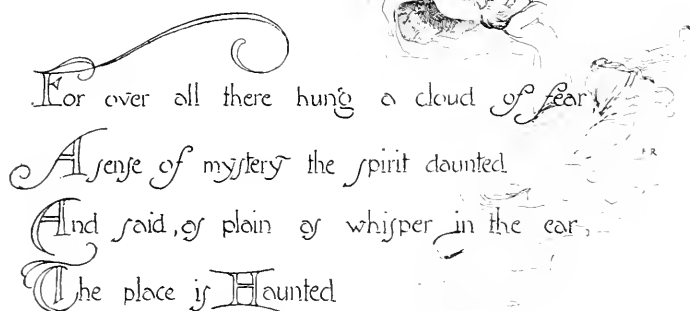 For over all there hung a cloud of fear,
A sense of mystery the spirit daunted
And said, as plain as whisper in the ear,
The place is Haunted
FR